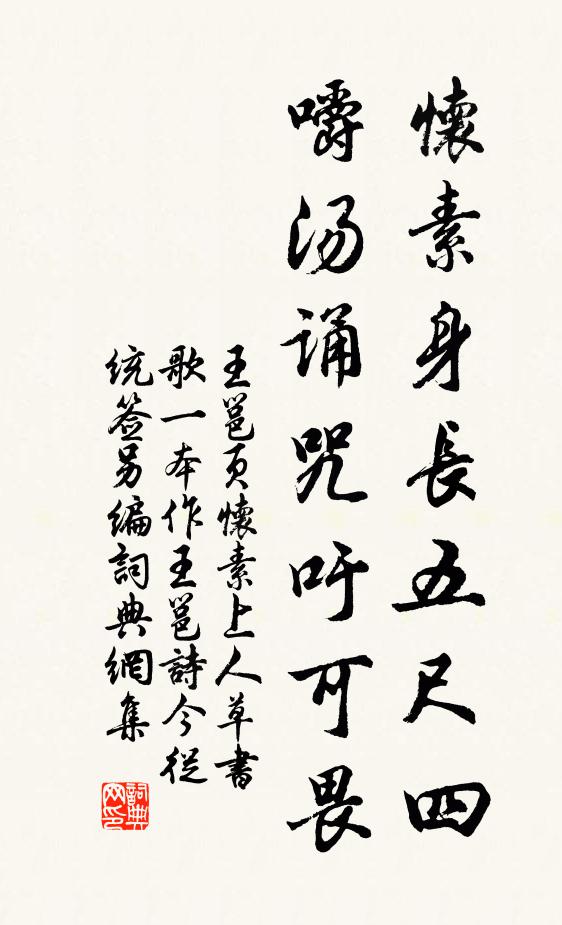 懷素身長五尺四
嚼汤誦咒吁可畏
王邕页懷素上人草書
歌一本作王邕詩今從
统签另编詞典網集
詞典网印